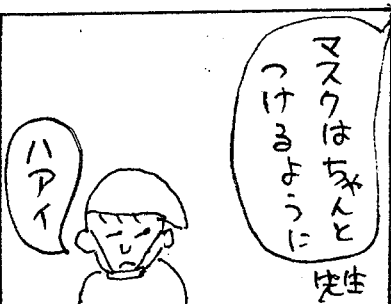 マスクはちゃんと
つけるように
先生
ハアイ